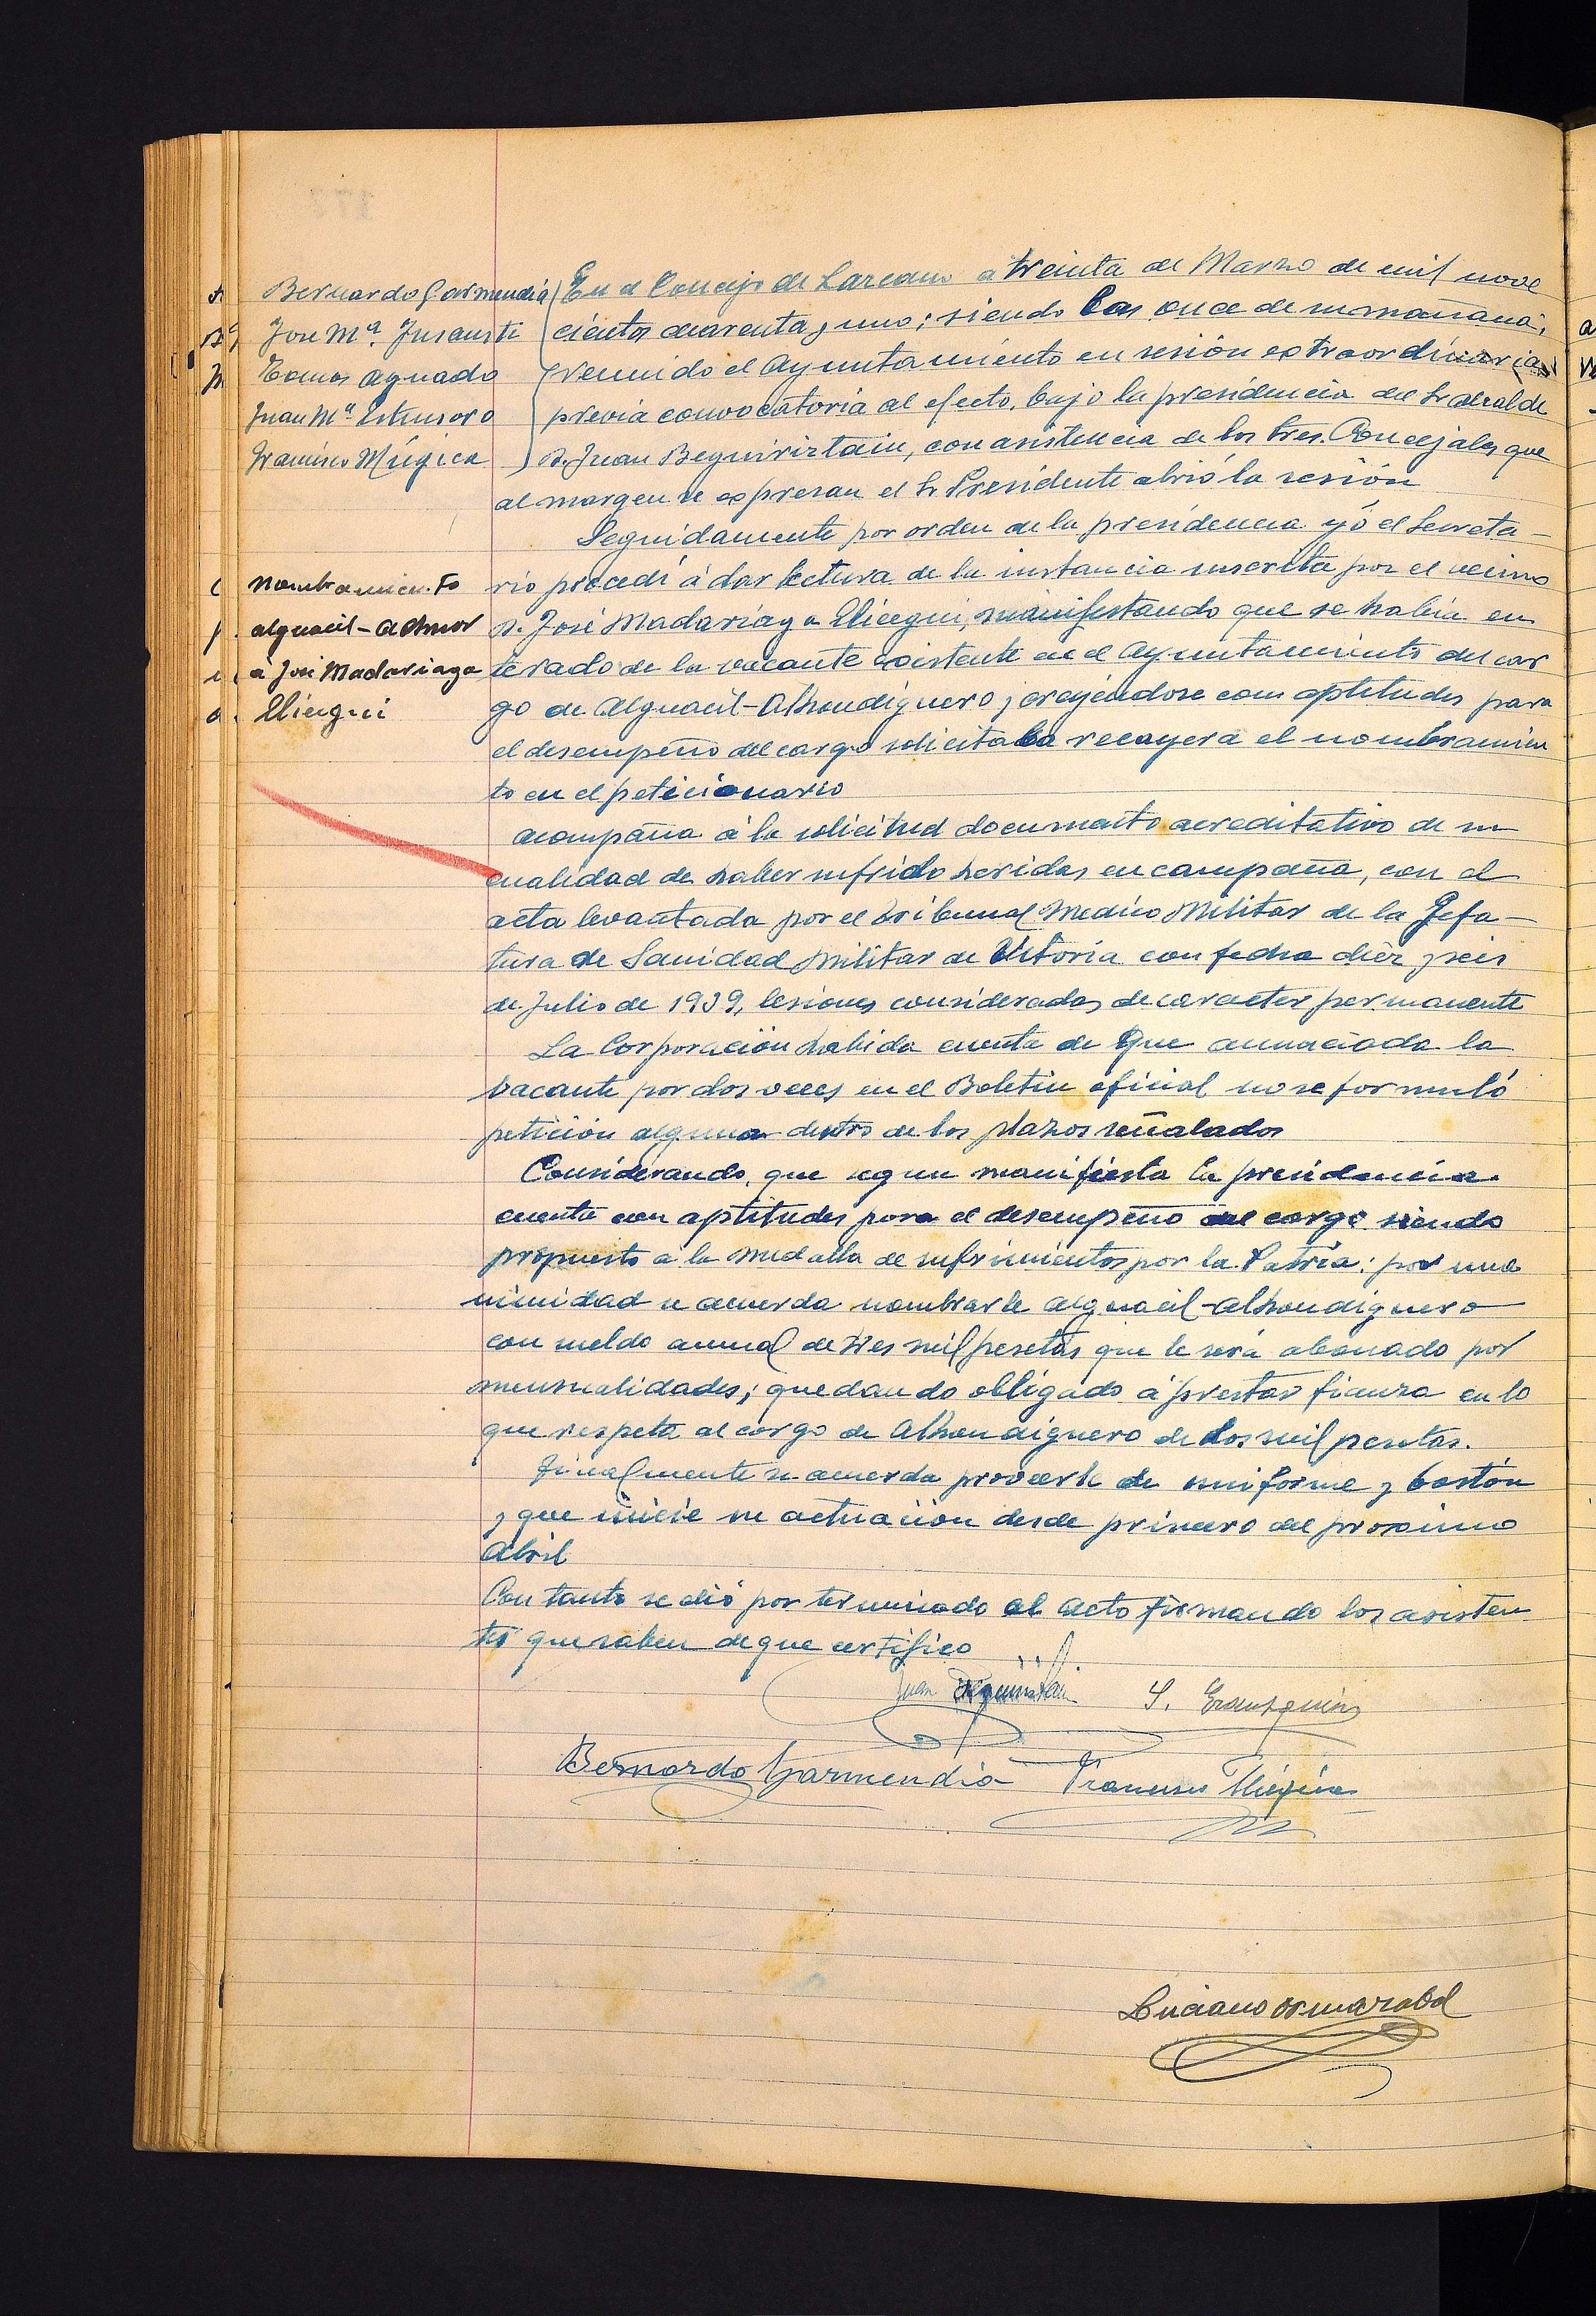 Bernardo Garmendia
Jose Mª. Insausti
Tomas Aguado
Juan Mª Estensoro
Francisco Múgica
En el Concejo de Lazcano a treinta de Marzo de mil nove
cientos cuarenta y uno; siendo las once de su mañana,
reunido el Ayuntamiento en sesión extraordinaria
previa convocatoria al efecto, bajo la presidencia del Sr Alcalde
D. Juan Beguiriztain, con asistencia de los Sres. Concejales que
al margen se expresan el Sr Presidente abrió la sesión
Seguidamente por orden de la presidencia yó el Secreta-
Nombramien.to
alguacil-
a José Madariaga
Elicegui
rio procedí á dar lectura de la instancia suscrita por el vecino
D. José Madariaga Elicegui, manifestando que se había en
terado de la vacante existente en el Ayuntamiento del car
go de Alguacil-Alhondiguero y creyéndose con aptitudes para
el desempeño del cargo solicitaba recayera el nombramien
to en el peticionario
Acompaña á la solicitud documento acreditativo de su
cualidad de haber sufrido heridas en campaña, con el
acta levantada por el tribunal Medico Militar de la Jefa-
tura de Sanidad Militar de Vitoria con fecha diez y seis
de Julio de 1939, lesiones consideradas de caracter permanente
La Corporación habida cuenta de que anunciada la
vacante por dos veces en el Boletin oficial no se formuló
petición alguna dentro de los plazos señalados
Considerando, que segun manifiesta la presidencia
cuenta con aptitudes para el desempeño del cargo siendo
propuesto a la medalla de sufrimientos por la Patria; por una
nimidad se acuerda nombrarle alguacil-alhondiguero
con sueldo anual de tres mil pesetas que le será abonado por
mensualidades; quedando obligado á prestar fianza en lo
que respeta al cargo de Alhondiguero de dos mil pesetas.
Finalmente se acuerda proveerle de uniforme y bastón
y que inicie su actuación desde primero del proximo
Abril
Con tanto se dió por terminado el acto firmando los asisten
tes que saben de que certifico
Juan Beguiristain
Bernardo Garmendia Francisco Múgica
Luciano Ormazabal